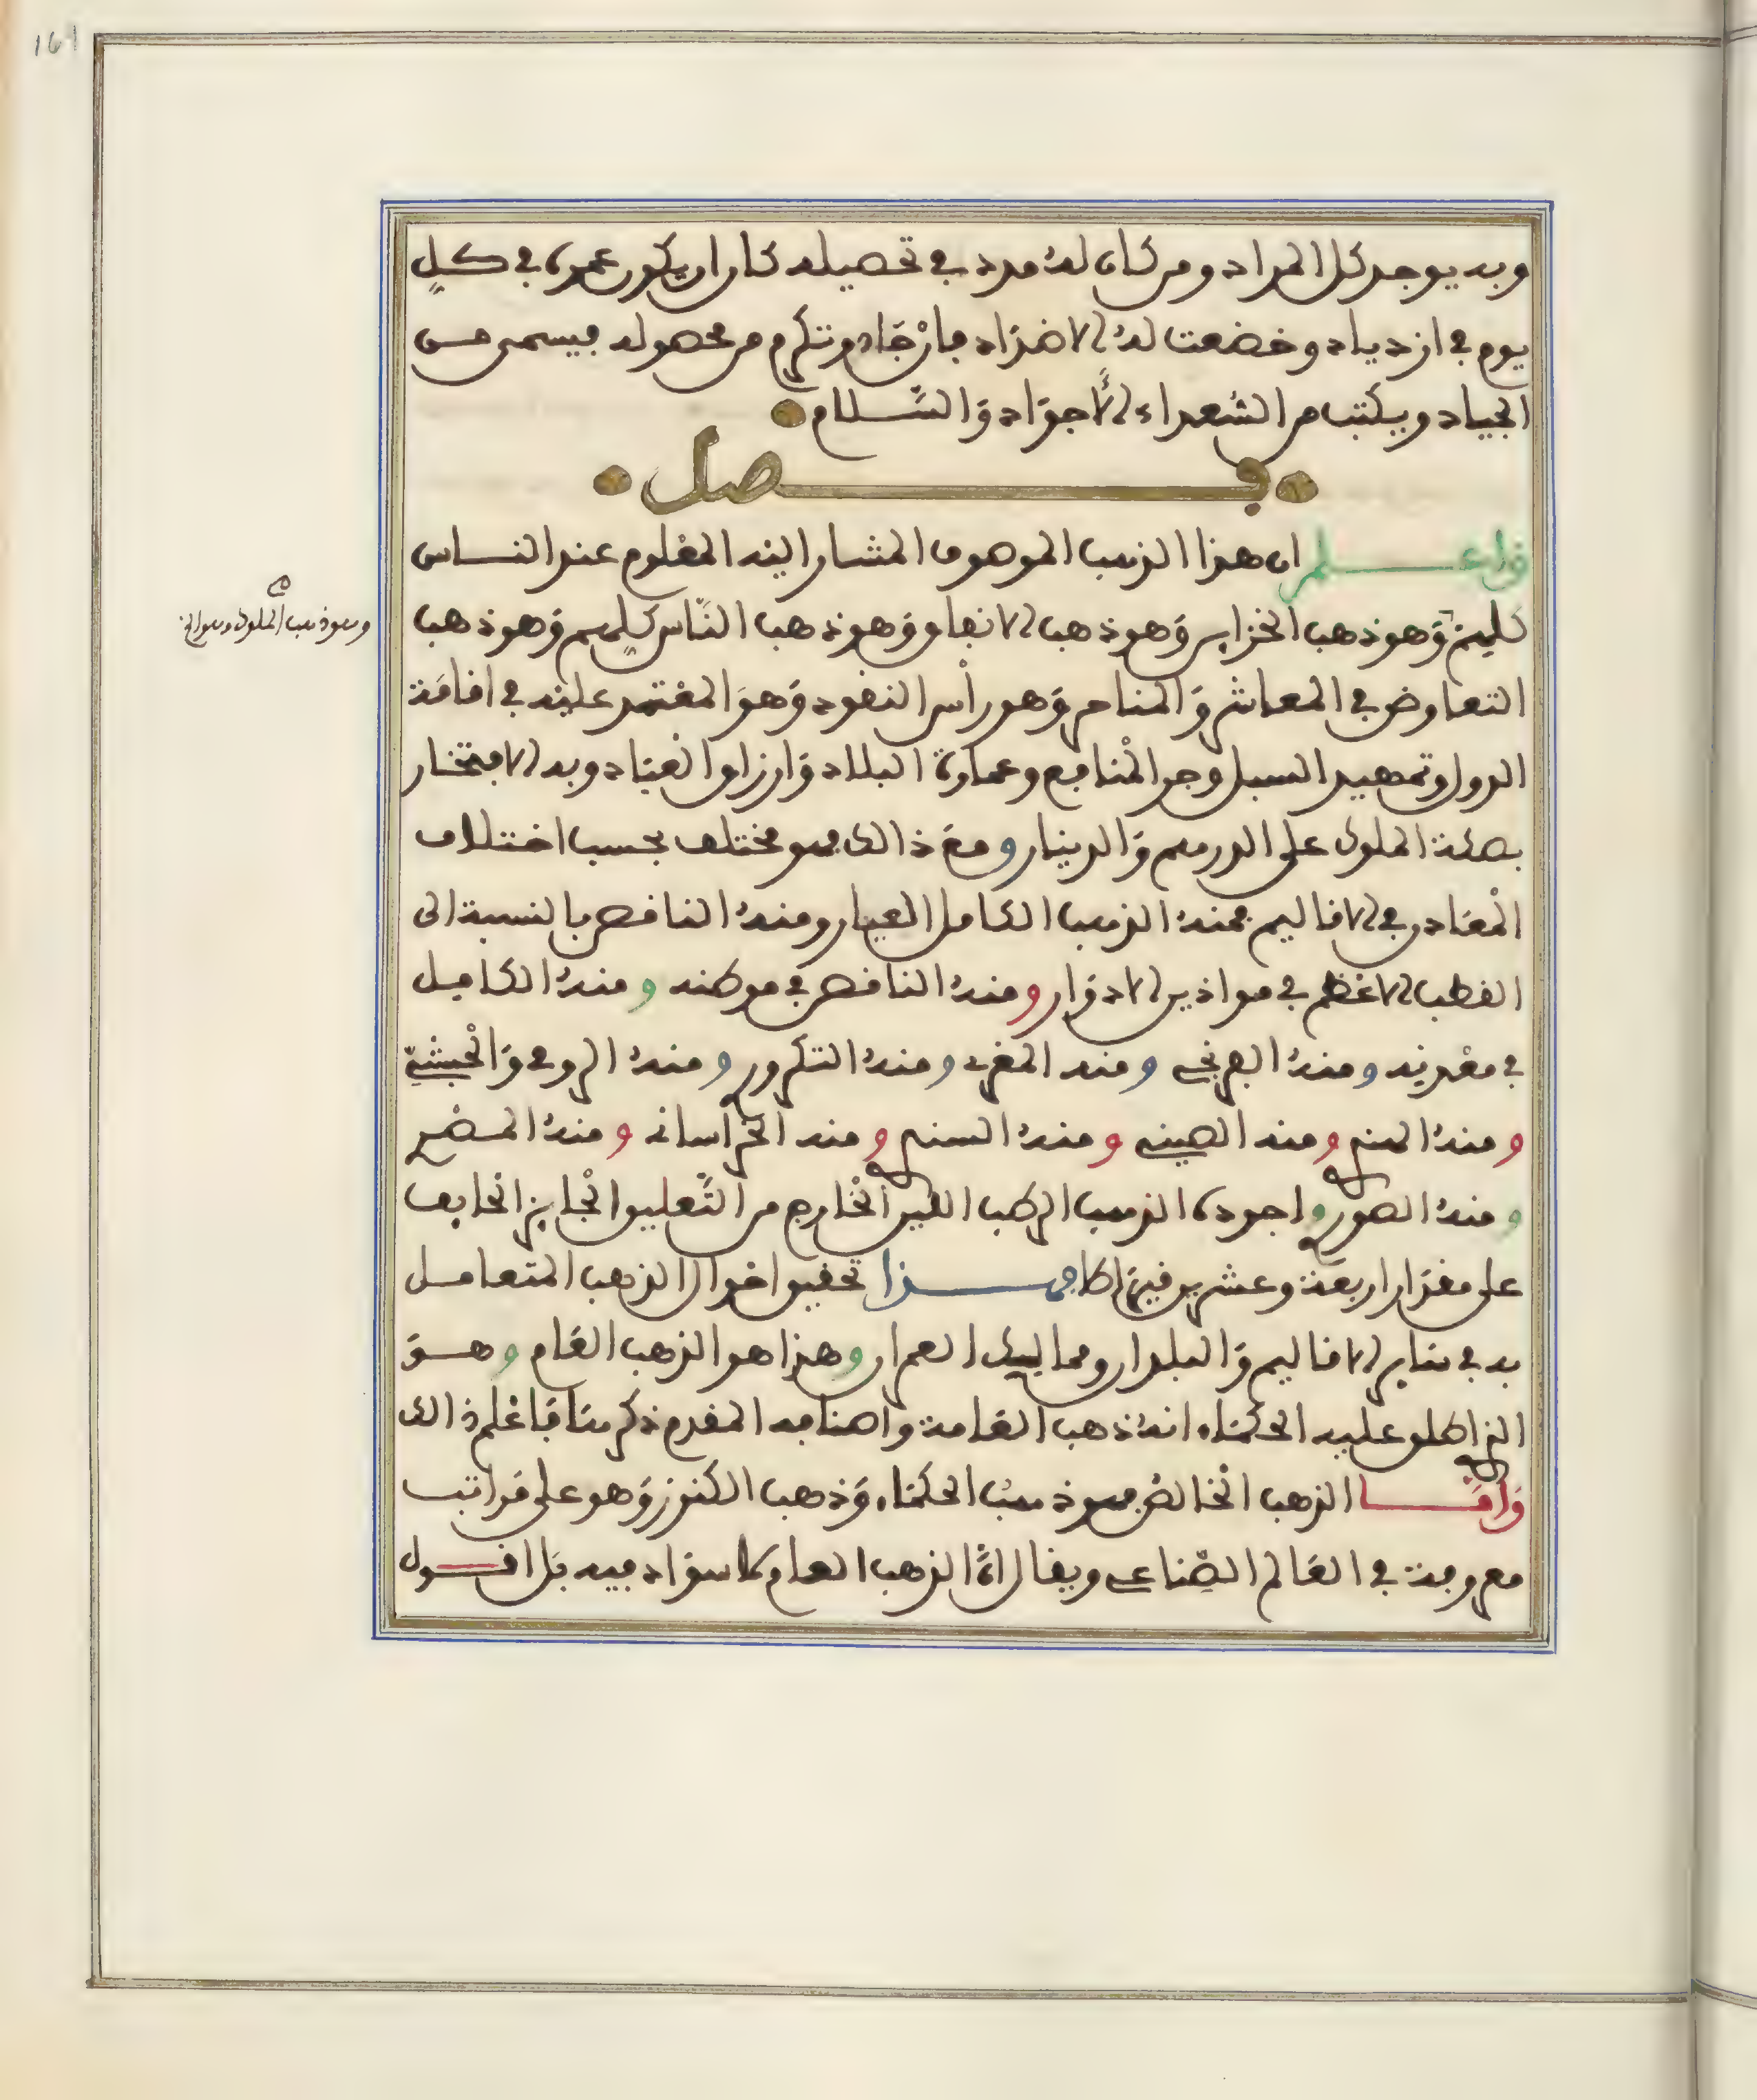 161
وبه يوجد كل المراد ومن كان له مدد في تحصيله كان ان يكون عمره في كل
يوم في ازدياد وخضعت له الاضداد فان جاد وتكرم من محصوله فيسمى من
الجياد ويكتب من الشعراء الاجواد والسلام
فصل
واعلم ان هذا الذهب الموصوف المشار اليه المعلوم عند الناس
كلهم وهو ذهب الخزاين وهو ذهب الانفاق وهو ذهب الناس كلهم وهو ذهب
وهو ذهب الملوك وهو
التعاوض في المعاش والمتاجر وهو راس النقود وهو المعتمد عليه في اقامة
الدول وتمهيد السبل وجر المنافع وعمارة البلاد وارزاق العباد وبه الافتخار
بصكة الملوك على الدرهم والدينار ومع ذالك فهو مختلف بحسب اختلاف
المعادن في الاقاليم فمنه الذهب الكامل العيار ومنه الناقص بالنسبة الى
القطب الاعظم في موازين الادوار ومنه الناقص في موطنه ومنه الكامل
في معدنه ومنه الافرنجي ومنه المغربي ومنه التكروري ومنه الرومي والحبشي
ومنه الهندي ومنه الصيني ومنه السندي ومنه الخراساني ومنه المصري
ومنه الصوري واجوده الذهب الرطب اللين الخارج من التعليق الجايز الخايف
على مقدار اربعة وعشرين قيراطا فهذا تحقيق احوال الذهب المتعامل
به في ساير الاقاليم والبلدان وممالك العمار وهذا هو الذهب العام وهو
الذي اطلق عليه الحكماء انه ذهب العامة واصنافه المقدم ذكرها فاعلم ذالك
واما الذهب الخالص فهو ذهب الحكماء وذهب الكنوز وهو على مراتب
معروفة في العالم الصناعي ويقال ان الذهب العام لا سواد فيه بل اقول